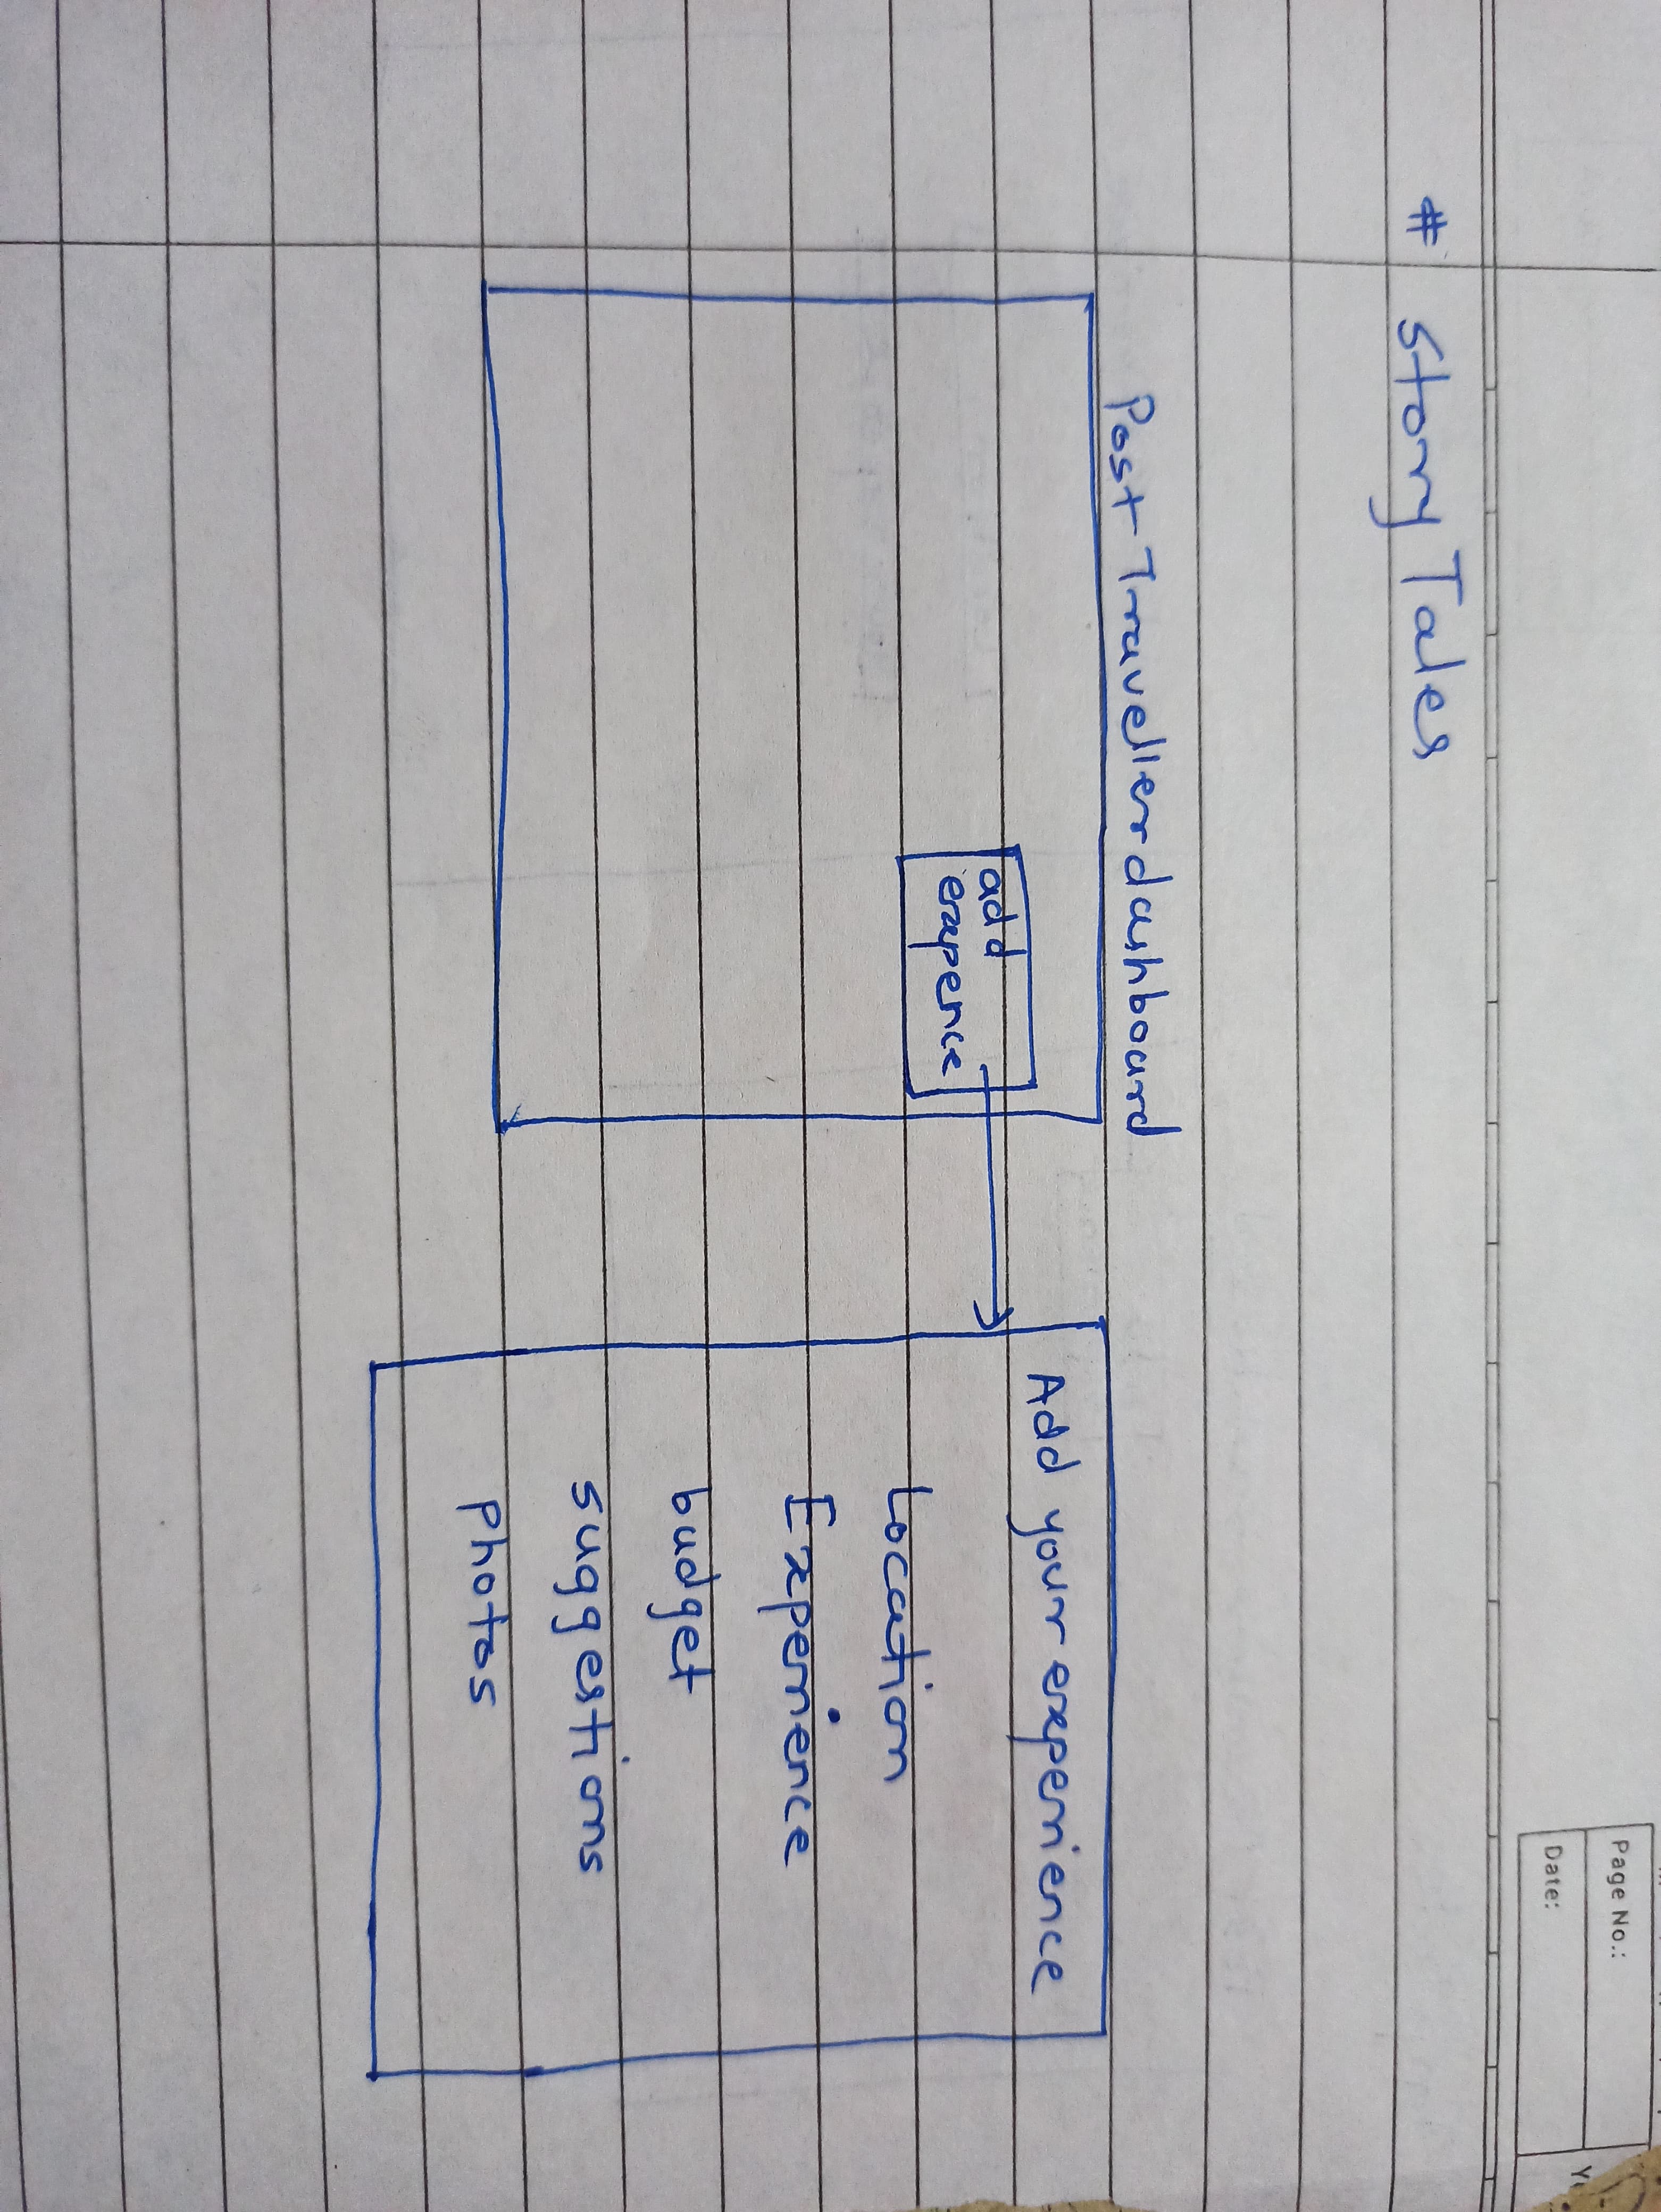 Page No.:
Date:
# Story Tales
Post Traveller dashboard
add
expence
Add your experience
Location
Experience
budget
suggestions
Photos